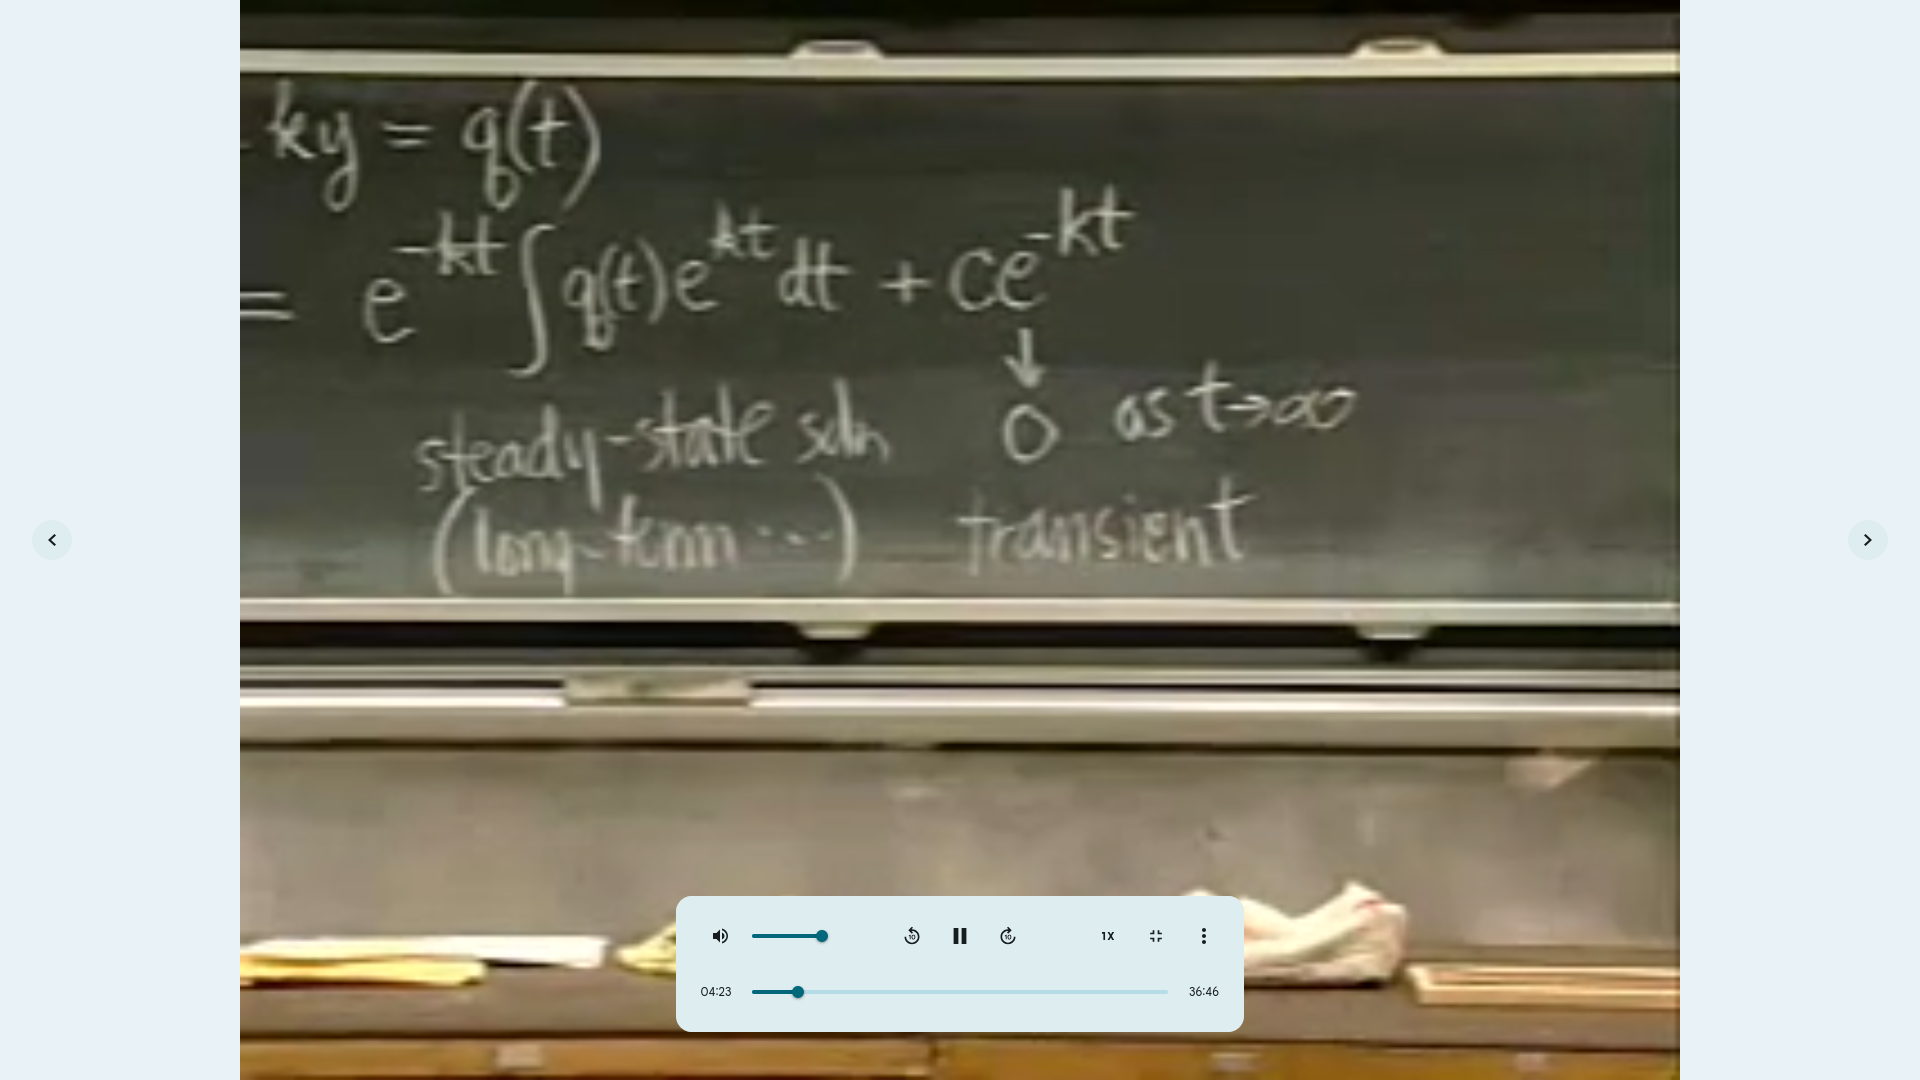 - ky = q(t)
= e^{-kt} ∫ q(t)e^{kt} dt + ce^{-kt}
↓
steady-state soln 0 as t→∞
(long-term ...) transient
10 10 1X
04:23 36:46